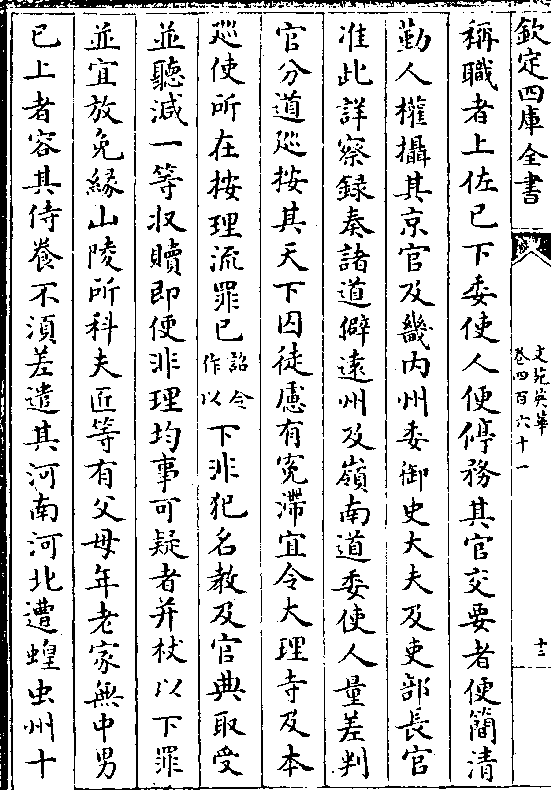 欽定四庫全書
文苑英華
卷四百六十一
十三
稱職者上佐已下委使人便停務其官交要者便簡清
勤人權攝其京官及畿内州委御史大夫及吏部長官
准此詳察録奏諸道僻遠州及嶺南道委使人量差判
官分道廵按其天下囚徒慮有寃滯宜令大理寺及本
廵使所在按理流罪已詔令作以下非犯名教及官典取受
並聽減一等收贖即便非理均事可疑者并杖以下罪
並宜放免緣山陵所科夫匠等有父母年老家無中男
已上者容其侍養不須差遣其河南河北遭蝗虫州十